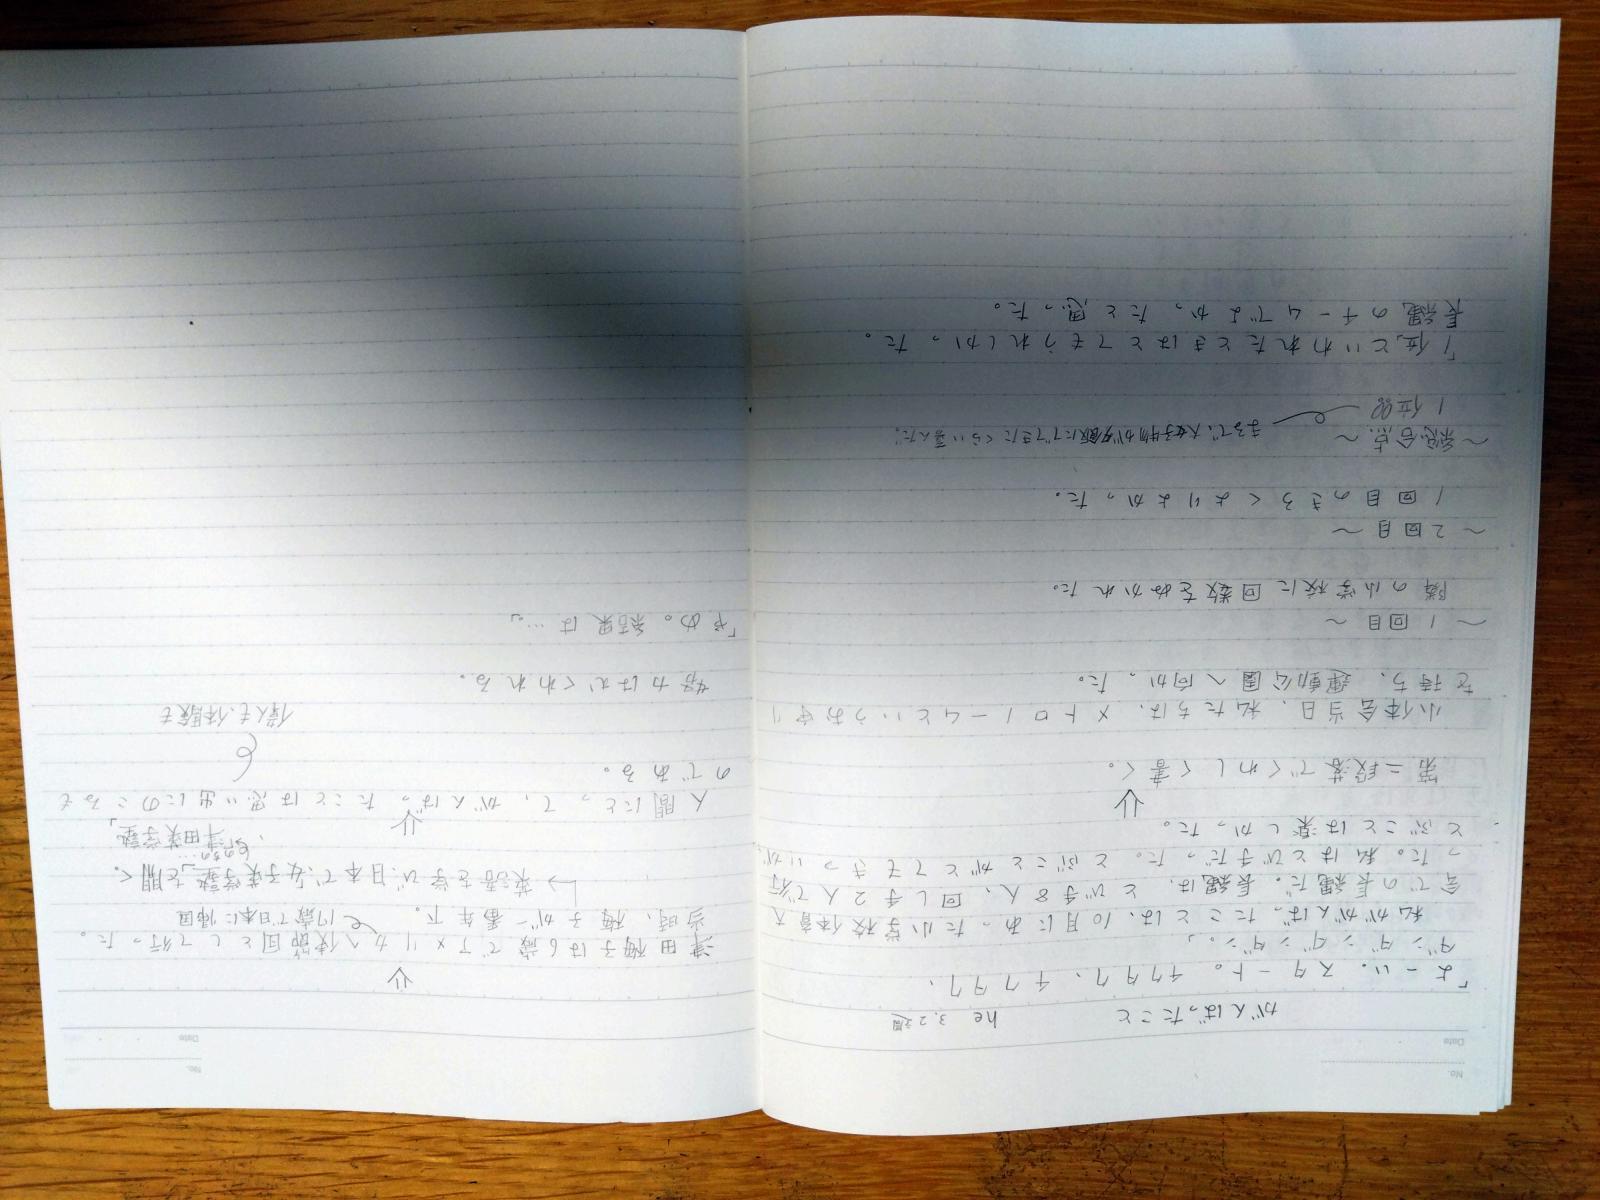 No.
Date
がんばったこと he 3.2週
「よーい、スタート。チクタク、チクタク、
ダンダンダンダン。」
私ががんばったことは、10月にあった小学校体育大
会での長縄だ。長縄は、とび手8人、回し手2人で行
った。私はとび手だった。とぶことがとてもきついが
とぶことは楽しかった。
⇓
第二段落でくわしく書く。
小体会当日、私たちは、メトロノームというお守り
を持ち、運動公園へ向かった。
〜1回目〜
隣の小学校に回数をぬかれた。
〜2回目〜
1回目のきろくよりよかった。
〜総合点〜
まるで、大好物が夕飯にでてきたくらい喜んだ。
1位
「1位」といわれたときはとてもうれしかった。
長縄のチームでよかったと思った。
No.
Date
⇓
津田梅子は6歳でアメリカへ使節団として行った。
当時、梅子が一番年下。 17歳で日本に帰国
→英語を学び、日本で、女子英学塾を開く。
のちの…
津田英学塾」
⇓
人間にとって、がんばったことは思い出にのこるも
のである。
偉人も、体験も
努力はむくわれる。
「やめ。結果は…。」